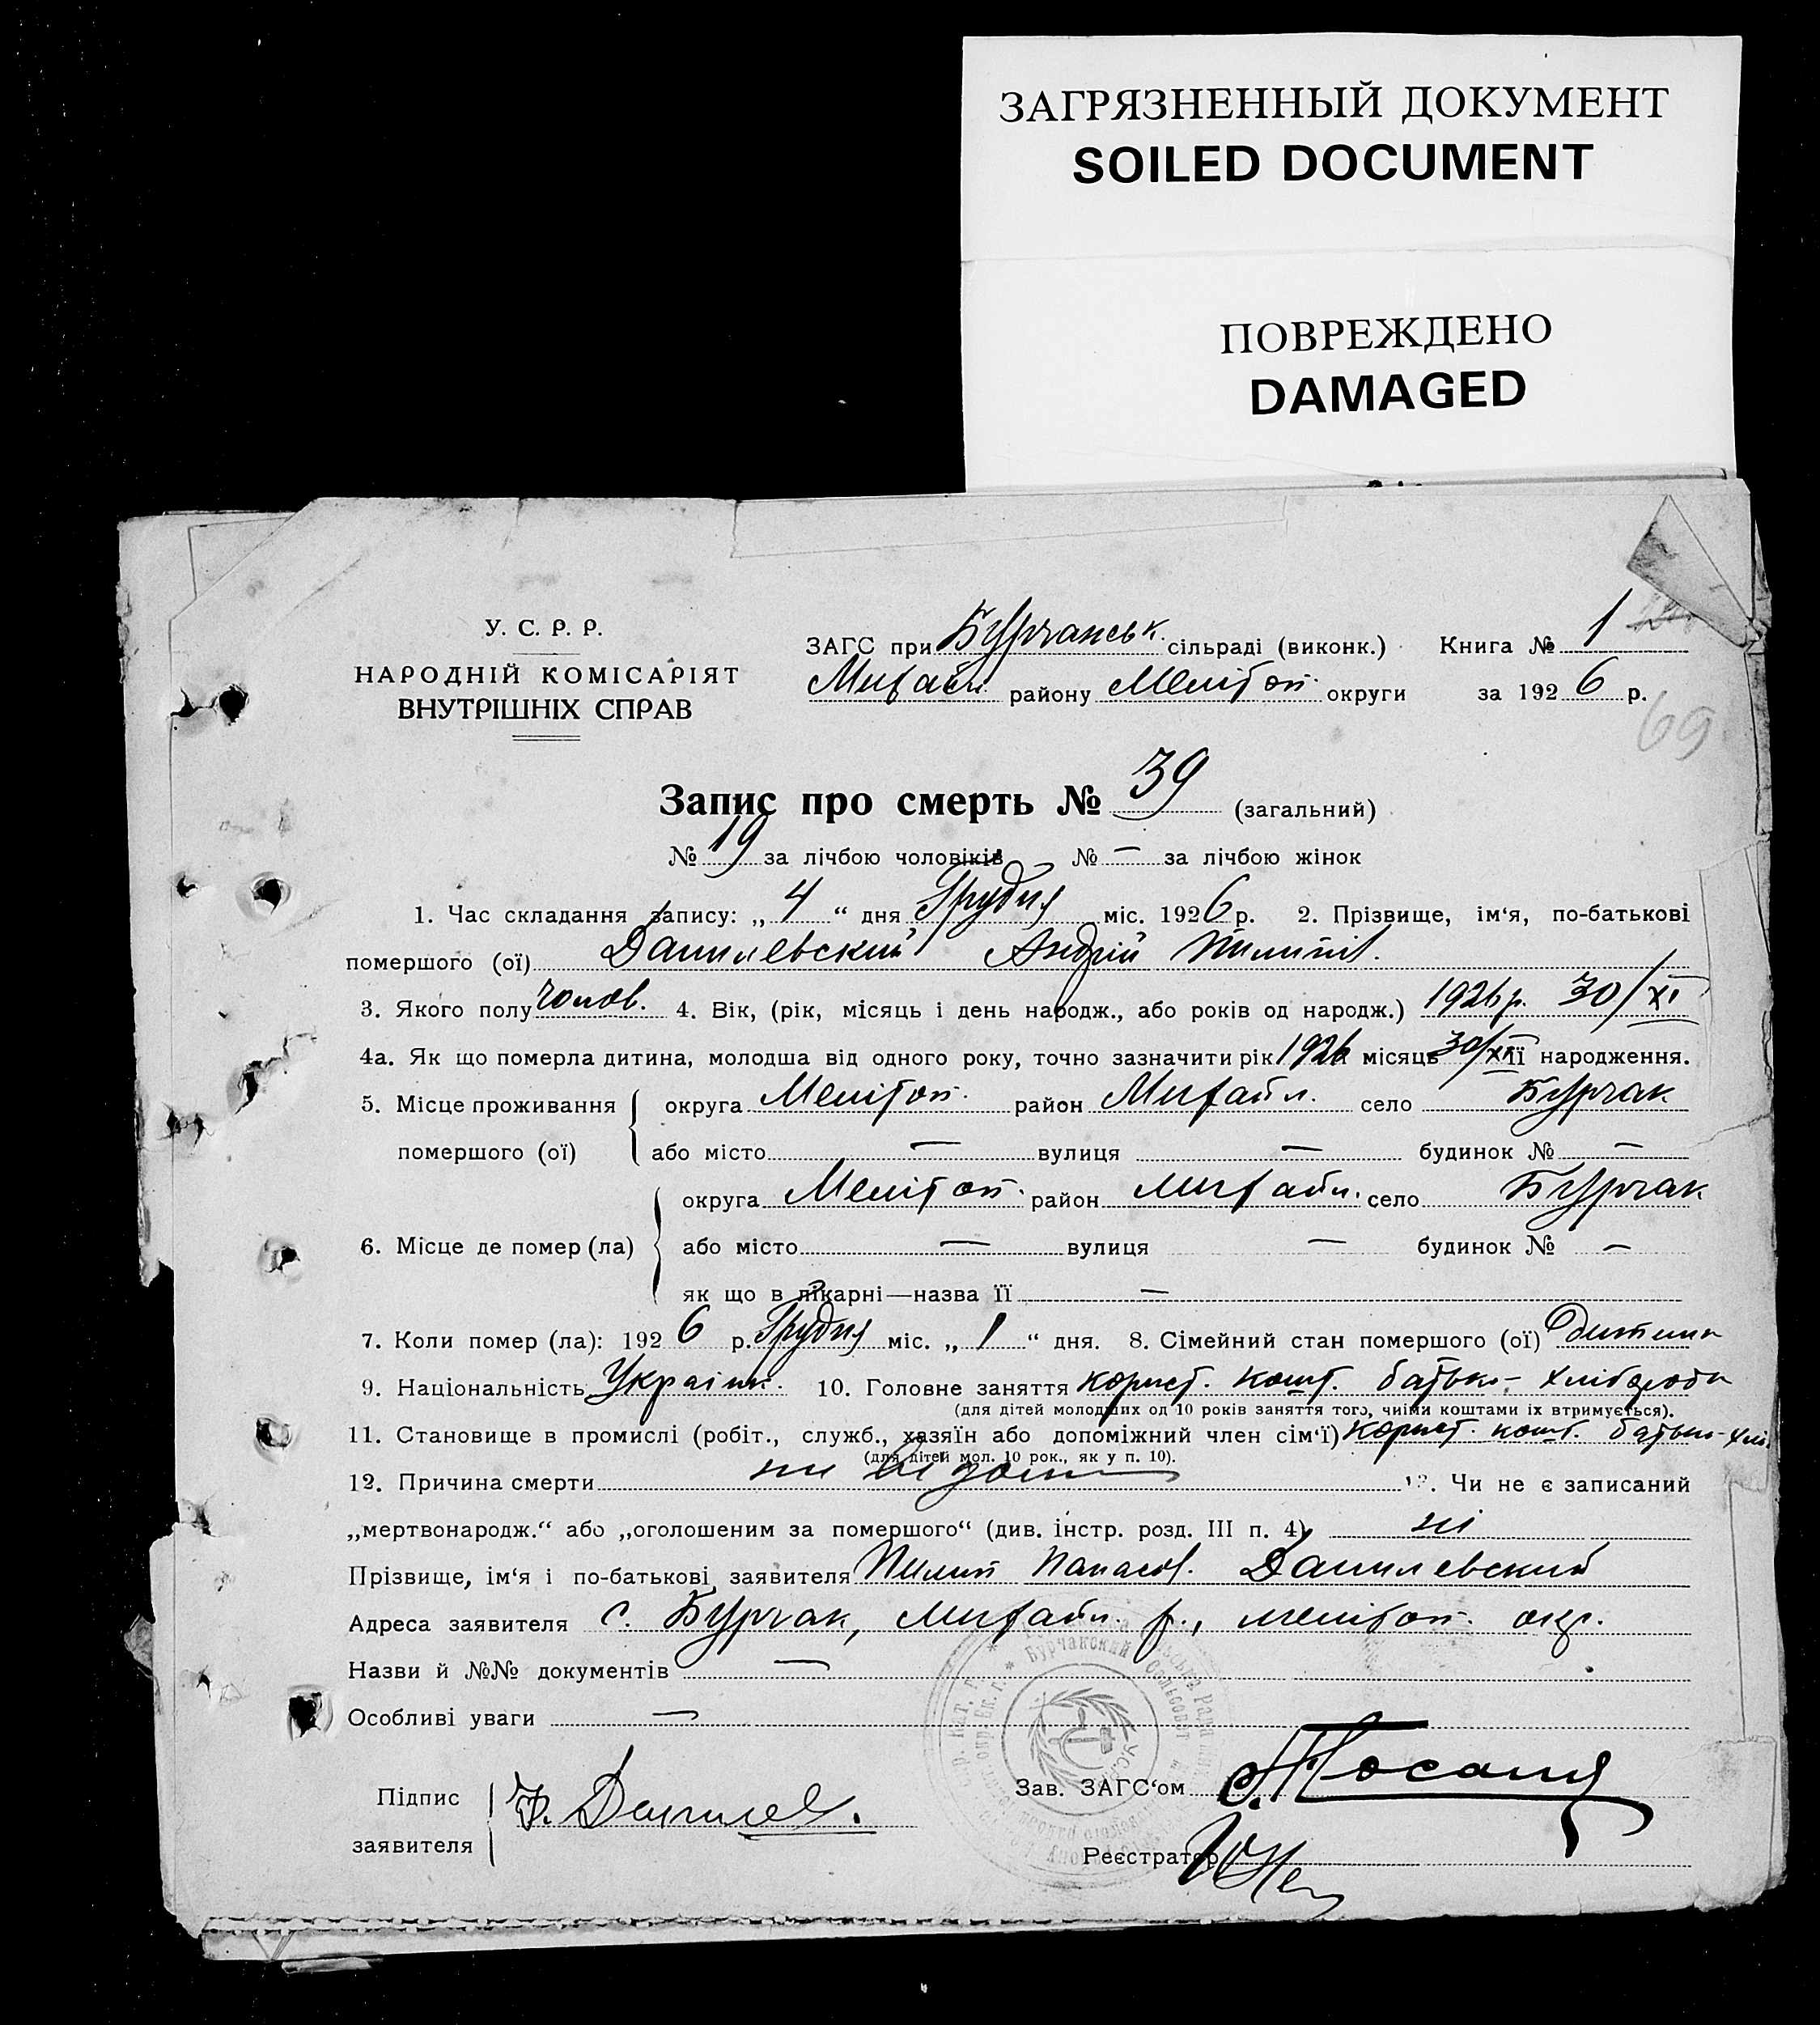 ЗАГРЯЗНЕННЫЙ ДОКУМЕНТ
SOILED DOCUMENT
ПОВРЕЖДЕНО
DAMAGED
У. С. Р. Р.
НАРОДНІЙ КОМІСАРІЯТ
ВНУТРІШНІХ СПРАВ
ЗАГС при Бурчанськ. сільраді (виконк.) Книга № 1
Михайл. району Мелітоп. округи за 1926 р.
69
Запис про смерть № 39 (загальний)
№ 19 за лічбою чоловіків № — за лічбою жінок
1. Час складання запису: „ 4 “ дня Грудня міс. 1926 р. 2. Прізвище, ім‘я, по-батькові
помершого (ої) Данилевский Андрій Пилипів.
3. Якого полу чолов. 4. Вік, (рік, місяць і день народж., або років од народж.) 1926 р. 30/XI
4а. Як що померла дитина, молодша від одного року, точно зазначити рік 1926 місяць 30/XI її народження.
5. Місце проживання помершого (ої) округа Мелітоп. район Михайл. село Бурчак
або місто — вулиця — будинок № —
6. Місце де помер (ла) округа Мелітоп. район Михайл. село Бурчак
або місто — вулиця — будинок № —
як що в лікарні—назва її —
7. Коли помер (ла): 1926 р. Грудня міс. „ 1 “ дня. 8. Сімейний стан помершого (ої) Дитина
9. Національність Україн. 10. Головне заняття корист. кошт. батьк-
(для дітей молодших од 10 років заняття того, чиїми коштами їх втримується).
11. Становище в промислі (робіт., служб., хазяїн або допоміжний член сім‘ї) корист. кошт. батьк-хлі
(для дітей мол. 10 рок., як у п. 10).
12. Причина смерти 13. Чи не є записаний
„мертвонародж.“ або „оголошеним за помершого“ (див. інстр. розд. III п. 4) ні
Прізвище, ім‘я і по-батькові заявителя Пилип Панасов. Данилевский
Адреса заявителя с. Бурчак, Михайл. р., мелітоп. окр.
Назви й №№ документів —
Особливі уваги —
Підпис заявителя Ф. Данилев.
Зав. ЗАГС‘ом
Реєстратор